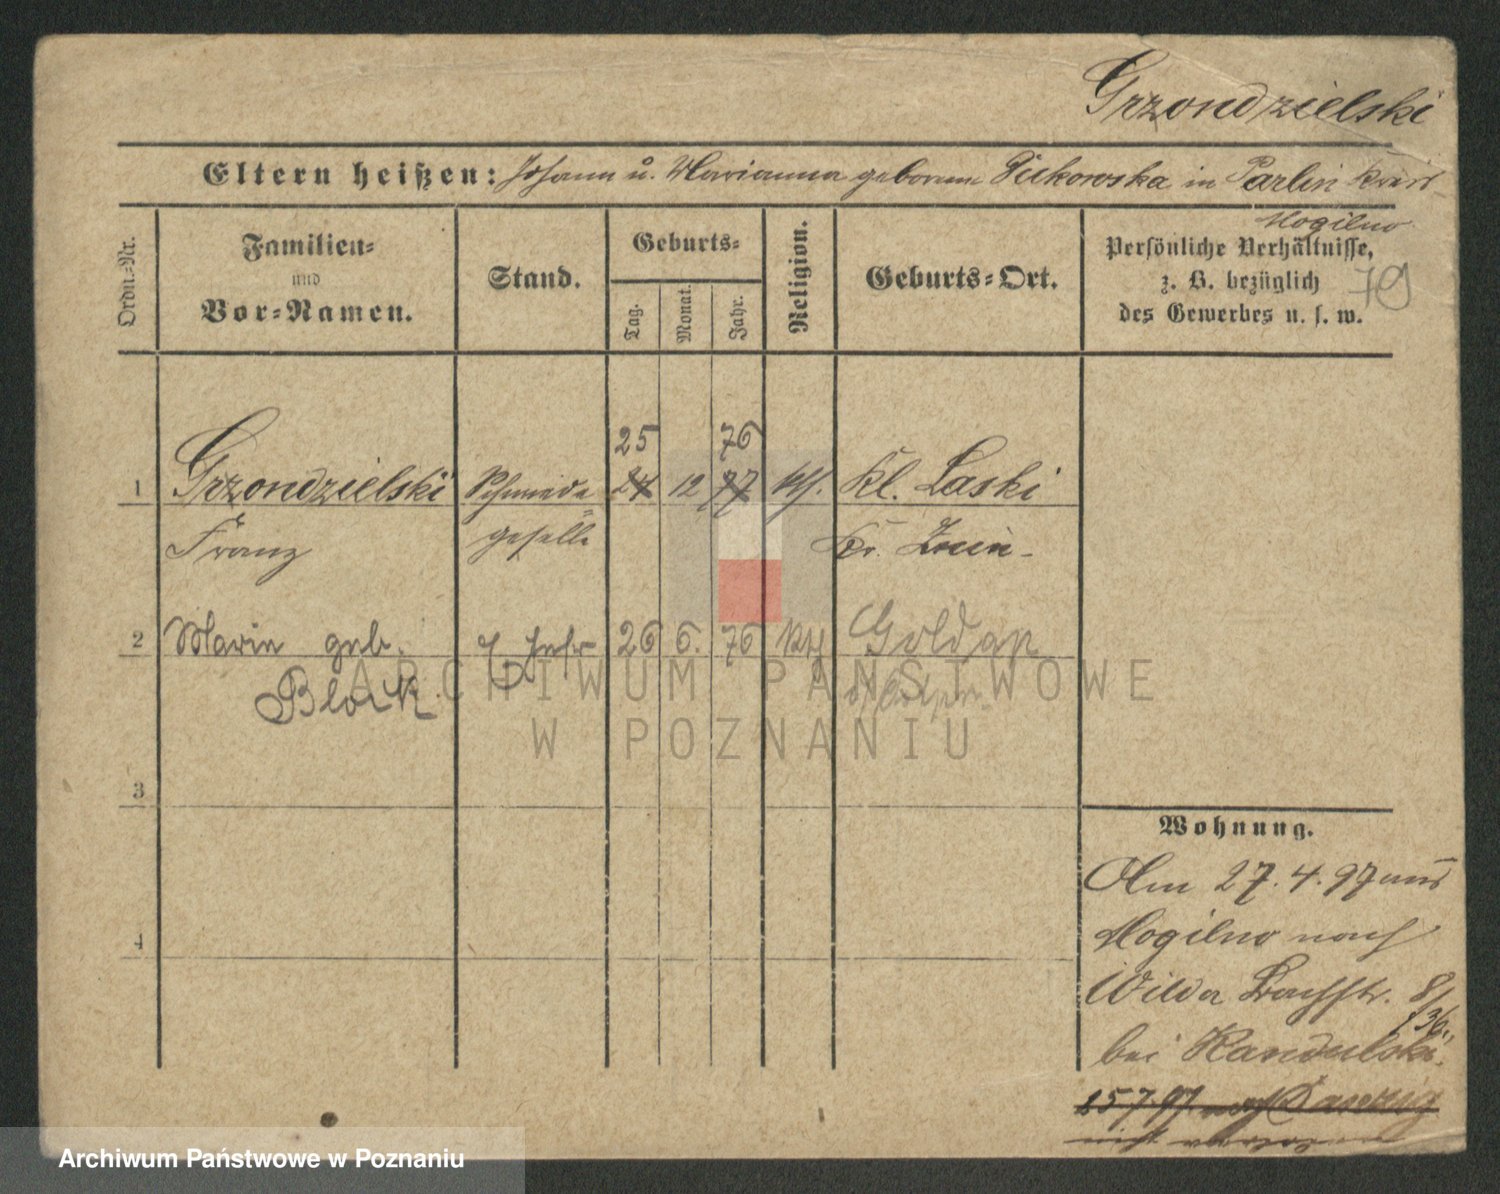 Grzondzielski
Eltern heißen: Johann u. Marianna geborene in Parlin Kreis
Mogilno
Ordn.-Nr.
Familien-
und
Vor-Namen.
Stand.
Geburts-
Tag.
Monat.
Jahr.
Religion.
Geburts-Ort.
Persönliche Verhältnisse,
z. B. bezüglich
des Gewerbes u. s. w.
79
25 76
1 Grzondzielski Schmiede 24 12 77 kth. Kl. Laski
Franz geselle Kr. Znin
2 Marie geb. 26 6. 76 kth Goldap
Block.
ARCHIWUM PAŃSTWOWE
W POZNANIU
3
Wohnung.
Am 27.4.97 aus
4
Mogilno nach
Wilda Bachstr. 8/
36.
bei Kandulski.
25 7.97 nach Danzig
nicht verzogen
Archiwum Państwowe w Poznaniu